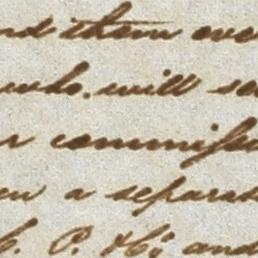 nd them eve
who will se
r commiss
en a separat
C. P. H; and